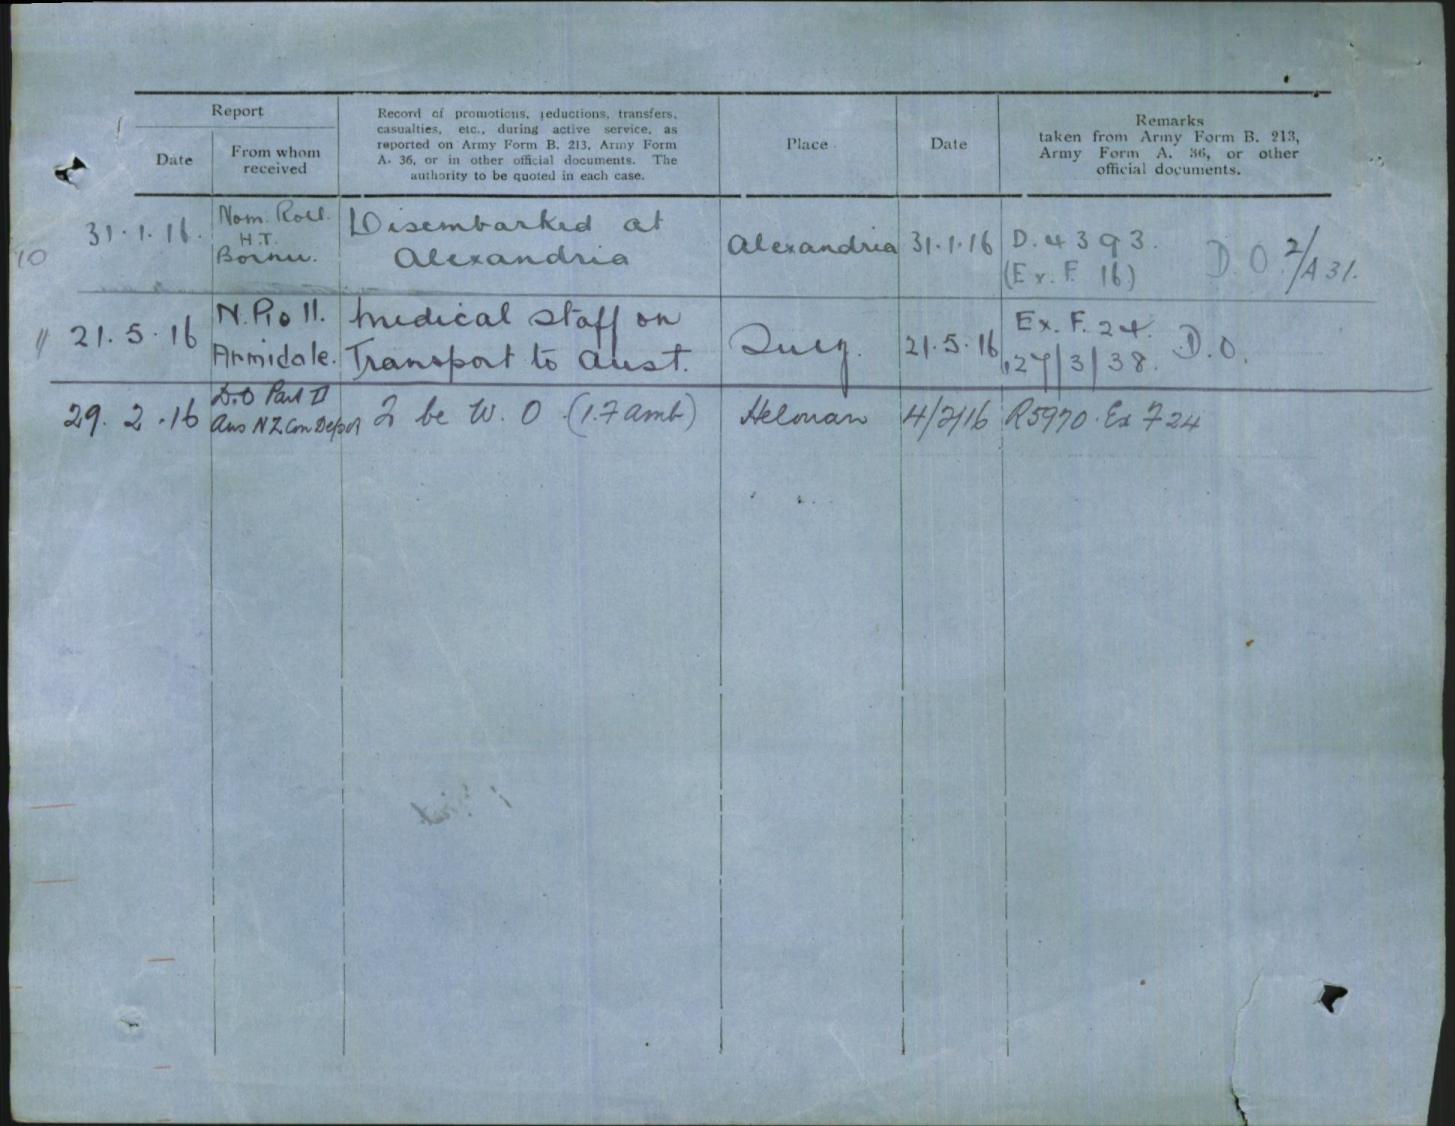 Report
Date
From whom
received
Record of promotions, reductions, transfers,
casualties, etc., during active service, as
reported on Army Form B. 213, Army Form
A. 36, or in other official documents. The
authority to be quoted in each case.
Place
Date
Remarks
taken from Army Form B. 213,
Army Form A. 36, or other
official documents.
10
31.1.16.
Nom. Roll.
H.T.
Bornu.
Disembarked at
Alexandria
Alexandria
31.1.16
D. 4393.
(Ex. F. 16)
D.O. 2/A31.
11
21.5.16
N. Roll.
Armidale.
Medical Staff on
Transport to Aust.
Suez.
21.5.16
Ex. F. 24.
127/3/38.
D.O.
29.2.16
D.O Part II
Aus NZ Con Depot
to be W.O. (1.7 amb)
Helouan
4/2/16
R5970. Ex F 24